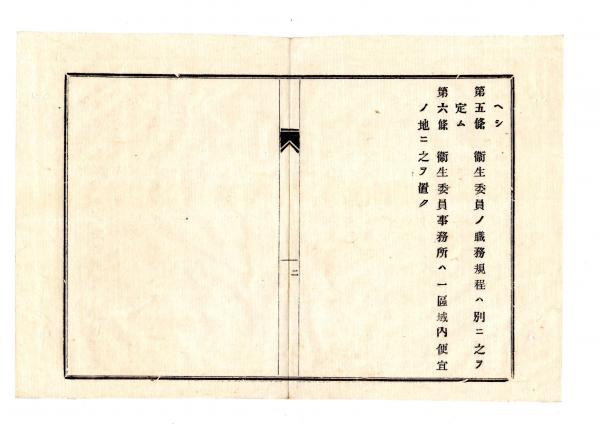 ヘシ
第五條 衞生委員ノ職務規程ハ別ニ之ヲ
定ム
第六條 衞生委員事務所ハ一區域內便宜
ノ地ニ之ヲ置ク
二